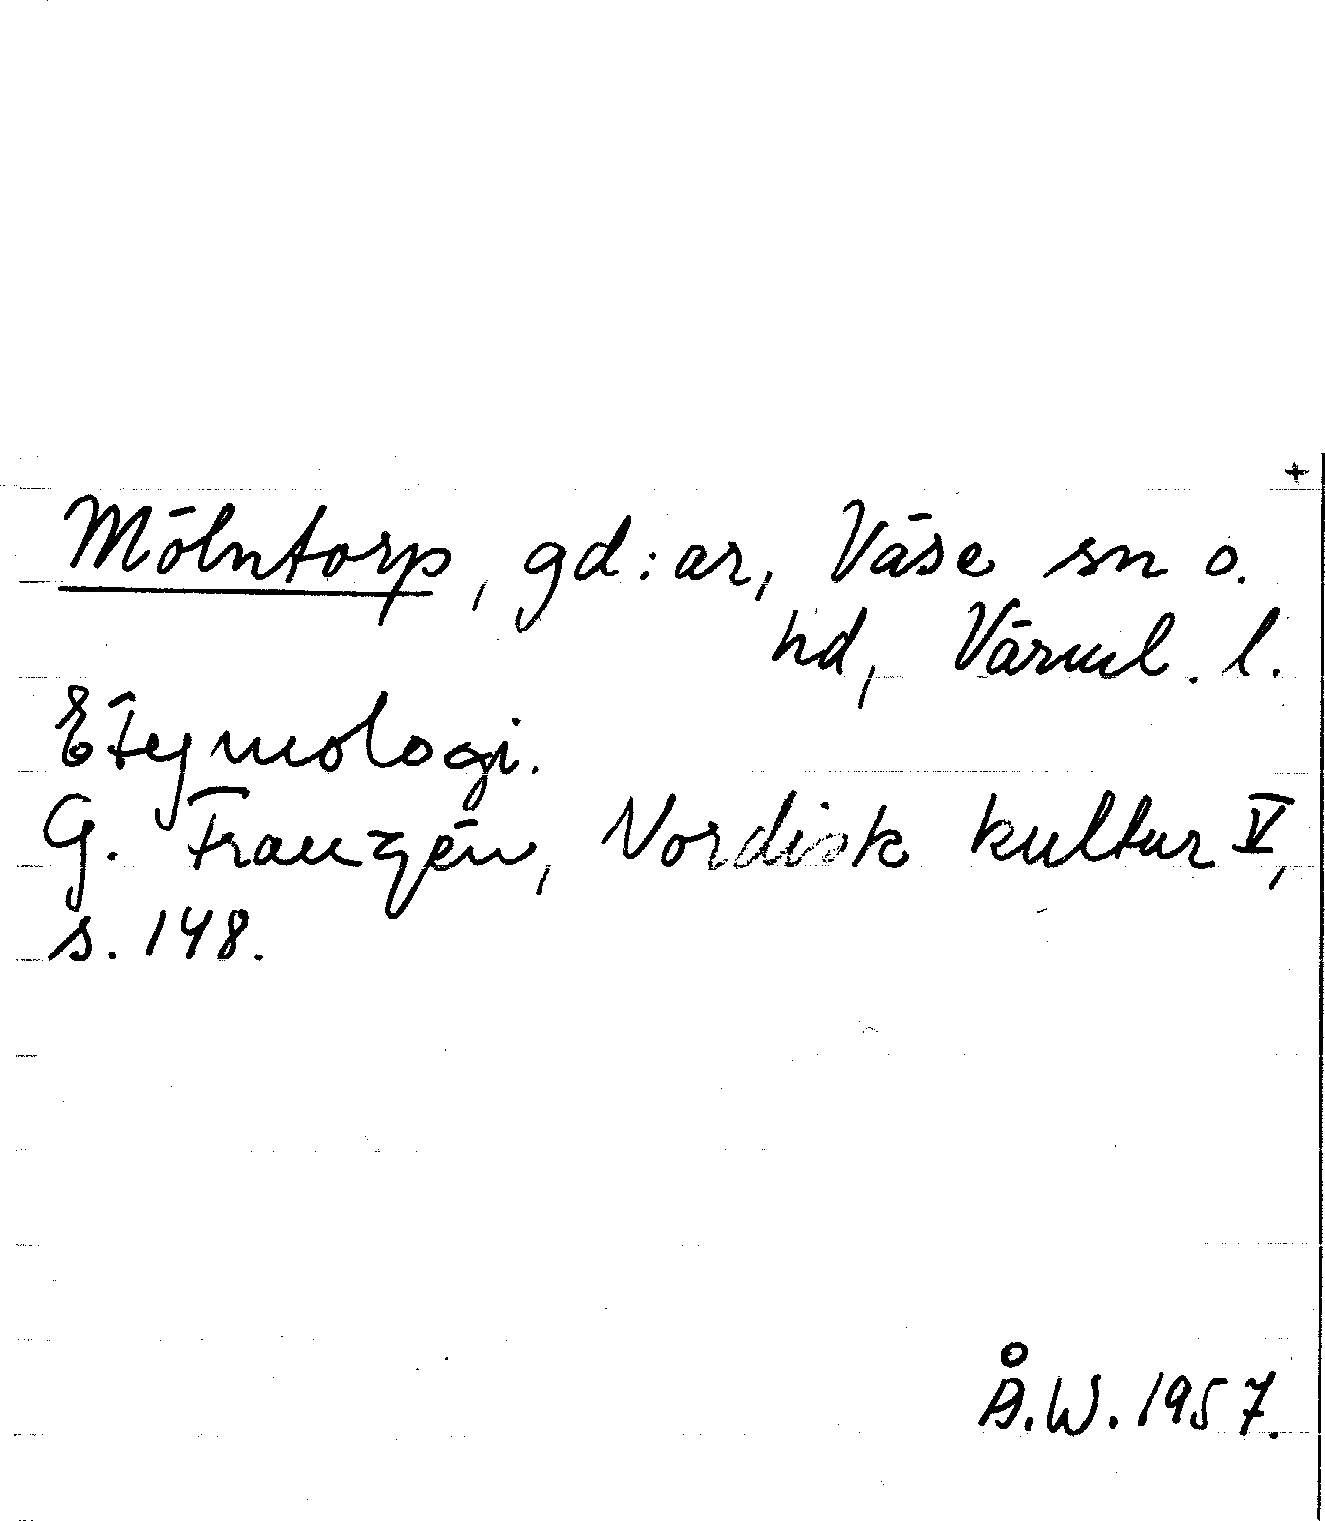 +
Mölntorp, gd:ar, Väse sn o.
hd, Värml. l.
Etymologi.
G. Franzén, Nordisk kultur V,
s. 148.
Å.W. 1957.